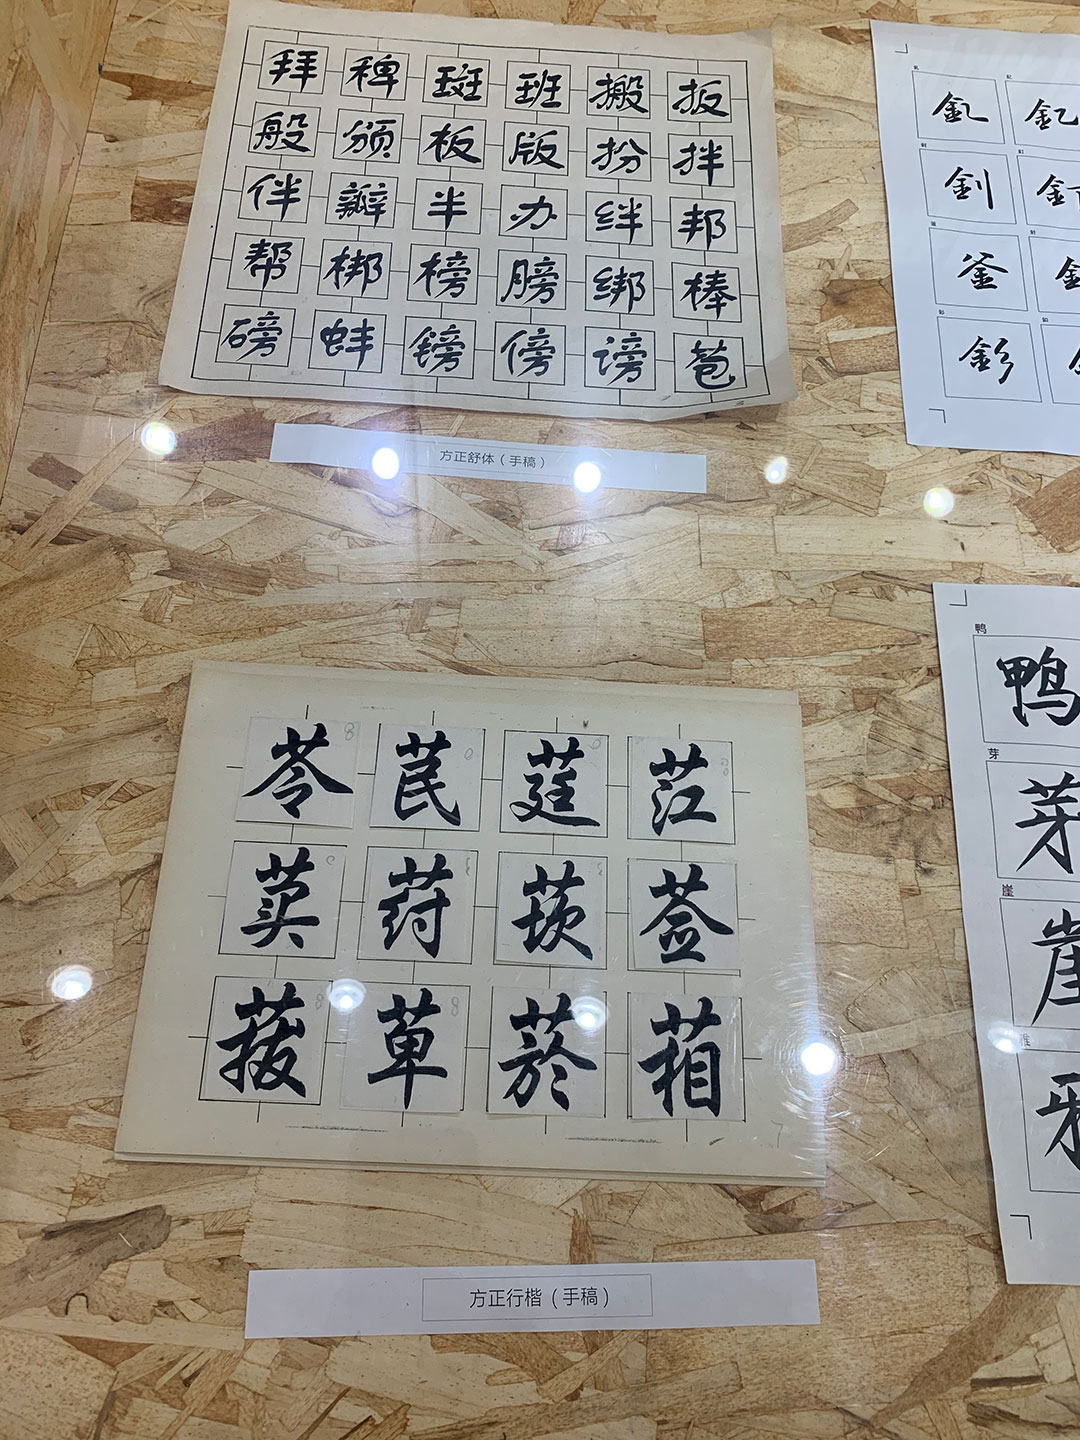 拜 稗 斑 班 搬 扳
般 颁 板 版 扮 拌
伴 瓣 半 办 绊 邦
帮 梆 榜 膀 绑 棒
磅 蚌 镑 傍 谤 苞
方正舒体（手稿）
釓 釔
釗
釜
釤
苓 苠 莛 茳
荬 荮 莰 莶
菝 萆 菸 葙
方正行楷（手稿）
鸭
鸭
芽
芽
崖
崖
雅